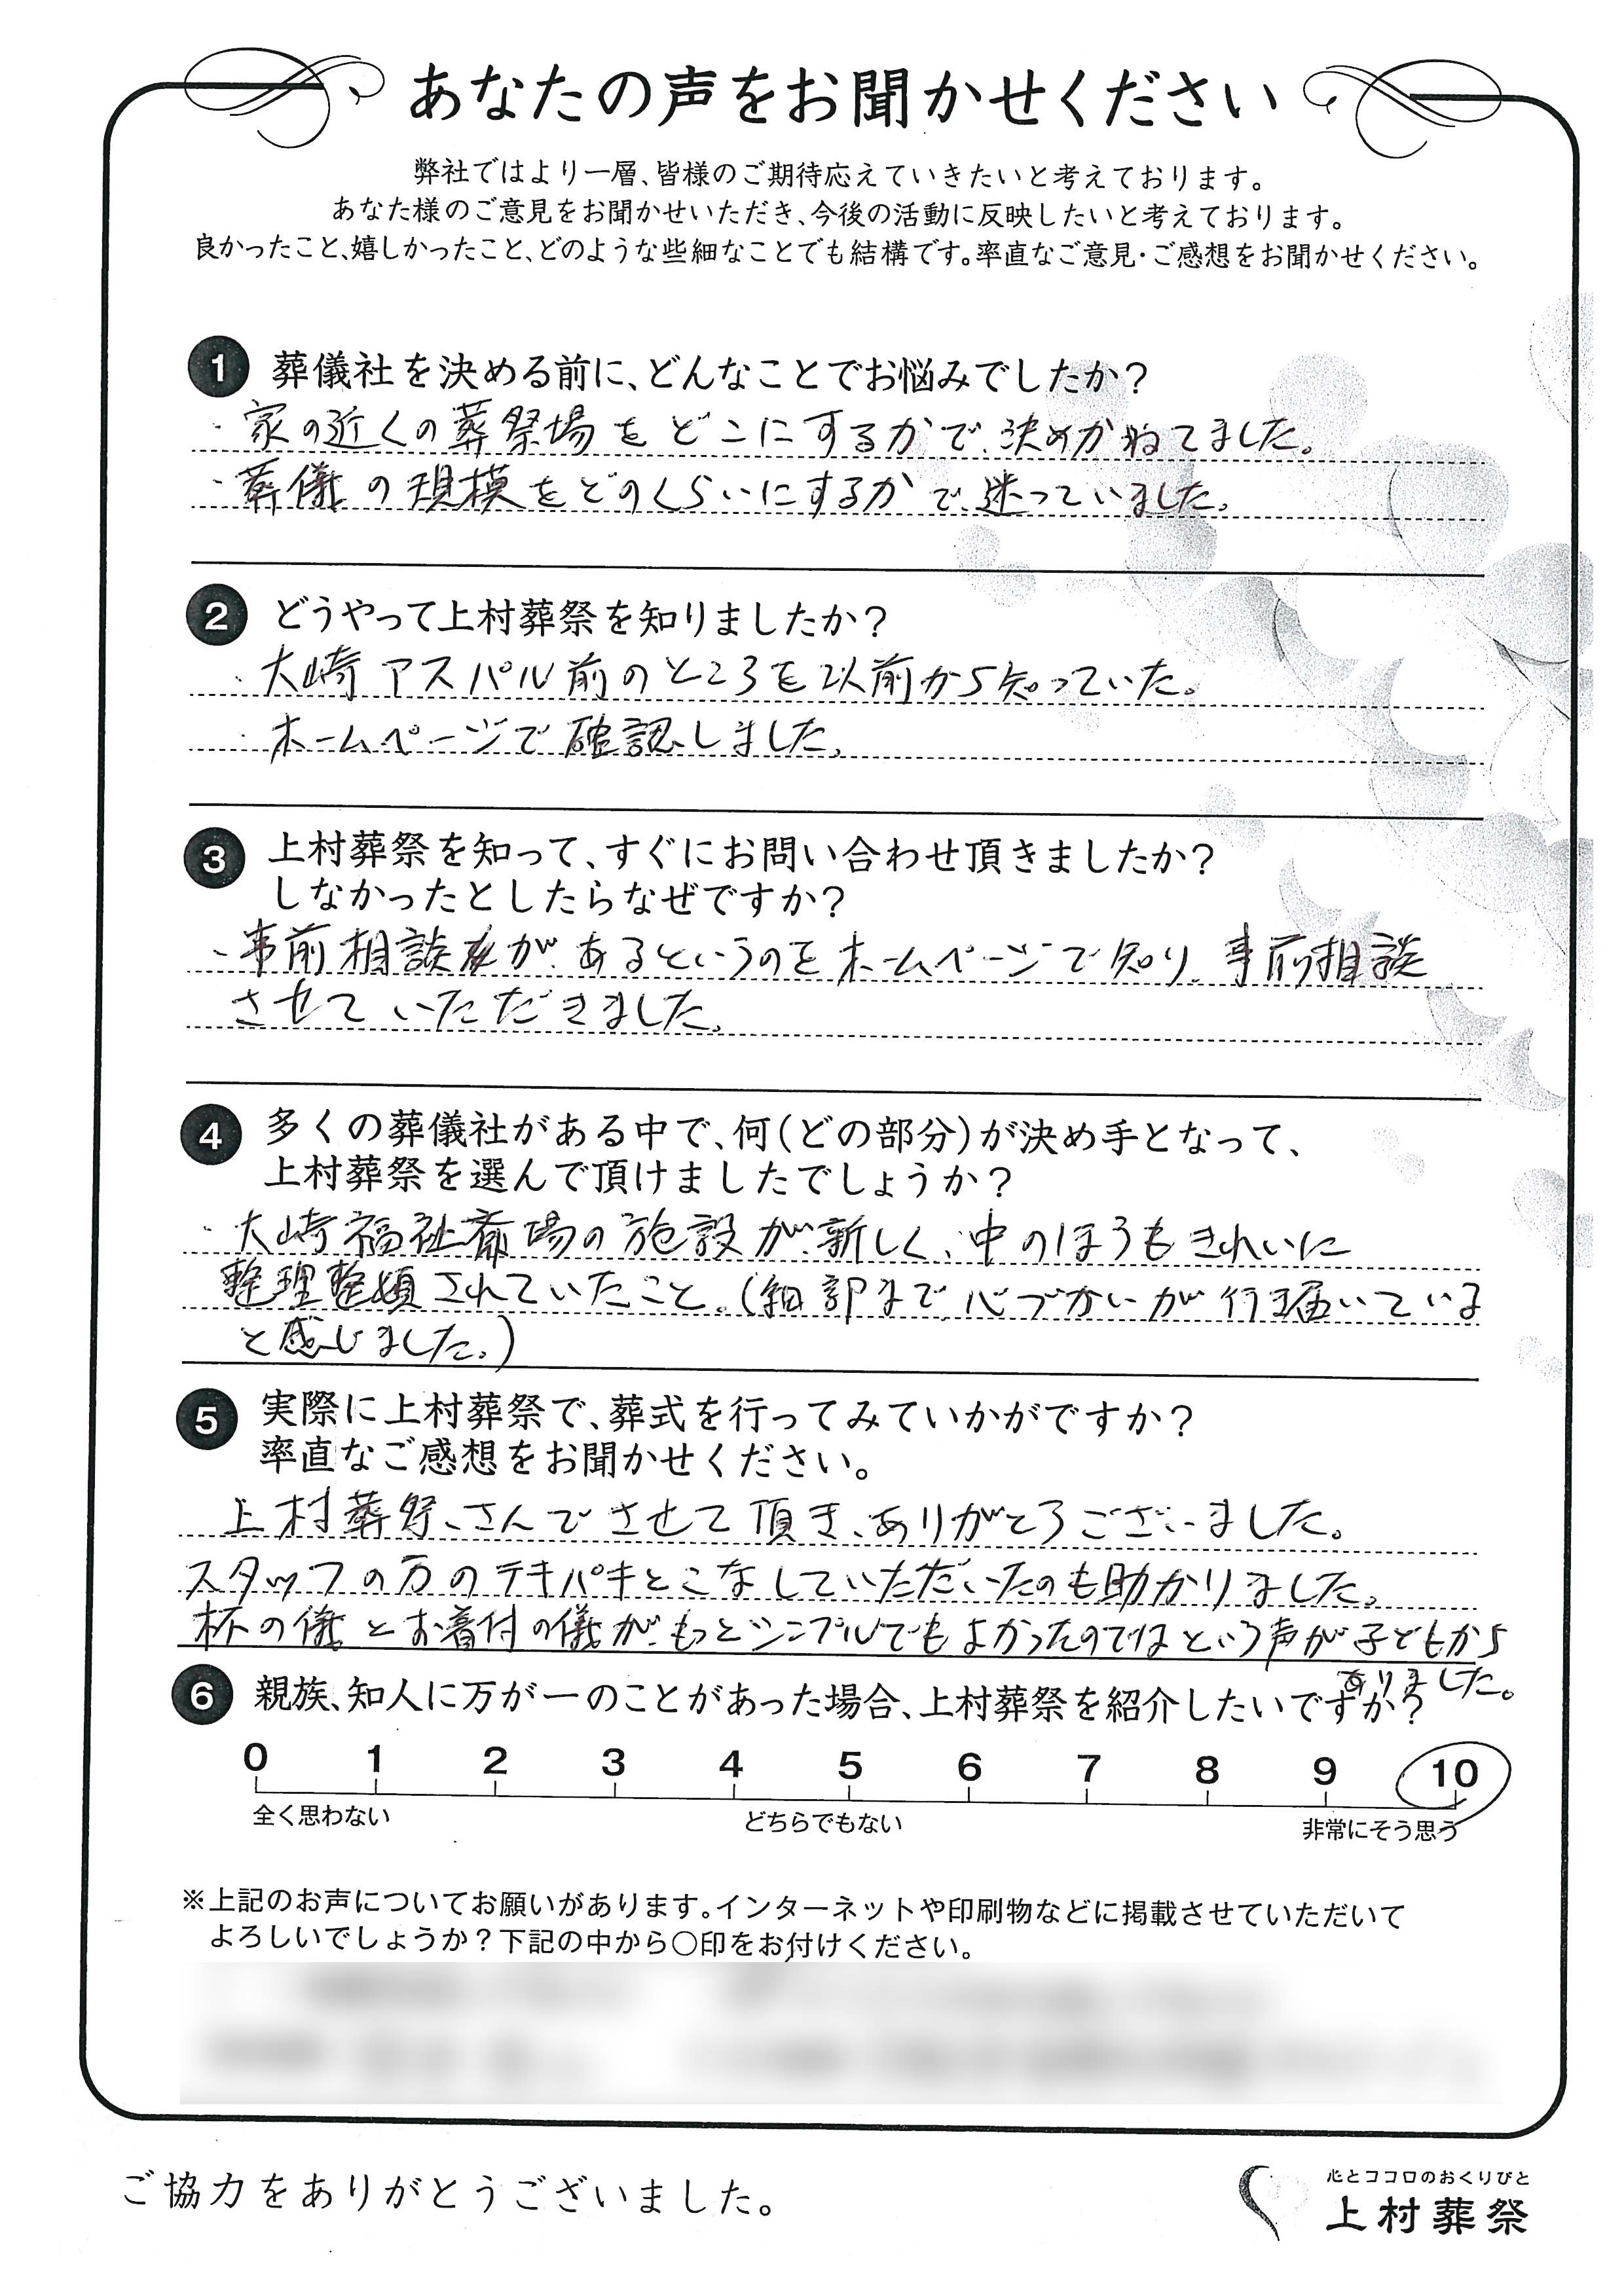 あなたの声をお聞かせください
弊社ではより一層、皆様のご期待応えていきたいと考えております。
あなた様のご意見をお聞かせいただき、今後の活動に反映したいと考えております。
良かったこと、嬉しかったこと、どのような些細なことでも結構です。率直なご意見・ご感想をお聞かせください。
1 葬儀社を決める前に、どんなことでお悩みでしたか?
・家の近くの葬祭場をどこにするかで、決めかねてました。
・葬儀の規模をどのくらいにするかで、迷っていました。
2 どうやって上村葬祭を知りましたか?
・大崎アスパル前のところを以前から知っていた。
・ホームページで確認しました。
3 上村葬祭を知って、すぐにお問い合わせ頂きましたか?
しなかったとしたらなぜですか?
・事前相談があるというのをホームページで知り、事前相談
させていただきました。
4 多くの葬儀社がある中で、何(どの部分)が決め手となって、
上村葬祭を選んで頂けましたでしょうか?
・大崎福祉斎場の施設が新しく、中のほうもきれいに
整理整頓されていたこと。(細部まで心づかいが行き届いている
と感じました。)
5 実際に上村葬祭で、葬式を行ってみていかがですか?
率直なご感想をお聞かせください。
上村葬祭さんでさせて頂き、ありがとうございました。
スタッフの方のテキパキとこなしていただいたのも助かりました。
杯の儀とお着付の儀が、もっとシンプルでもよかったのではという声が子どもから
ありました。
6 親族、知人に万が一のことがあった場合、上村葬祭を紹介したいですか?
0 1 2 3 4 5 6 7 8 9 10
全く思わない どちらでもない 非常にそう思う
※上記のお声についてお願いがあります。インターネットや印刷物などに掲載させていただいて
よろしいでしょうか?下記の中から○印をお付けください。
ご協力をありがとうございました。
心とココロのおくりびと
上村葬祭